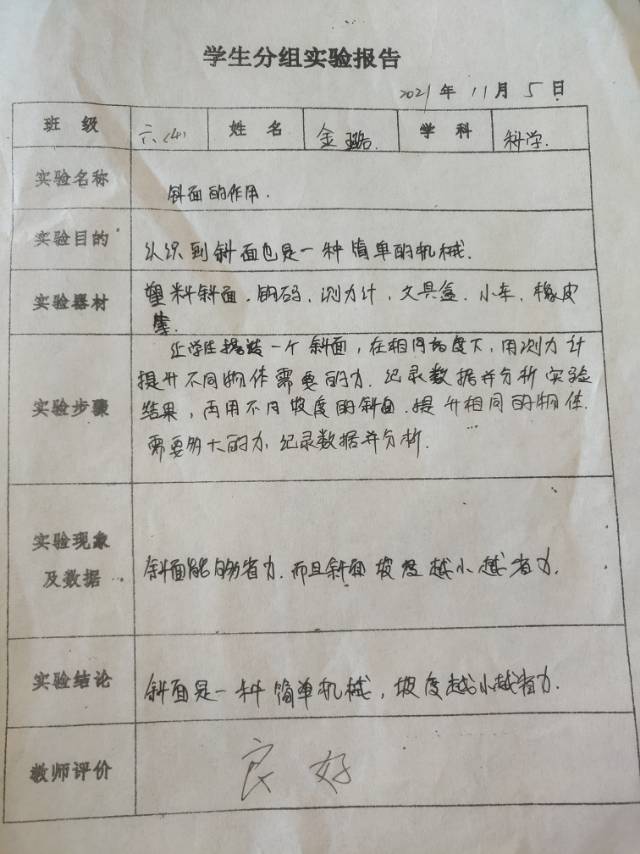 学生分组实验报告
2021年11月5日
班级 六(4) 姓名 金璐. 学科 科学.
实验名称 斜面的作用.
实验目的 认识到斜面也是一种简单的机械.
实验器材 塑料斜面.钩码.测力计.文具盒.小车.橡皮
等.
让学生搭一个斜面,在相同坡度下,用测力计
提升不同物体需要的力.纪录数据并分析实验
实验步骤 结果,再用不同坡度的斜面.提升相同的物体.
需要多大的力.纪录数据并分析.
实验现象
及数据 斜面能够省力.而且斜面坡度越小越省力.
实验结论 斜面是一种简单机械,坡度越小越省力.
教师评价 良好